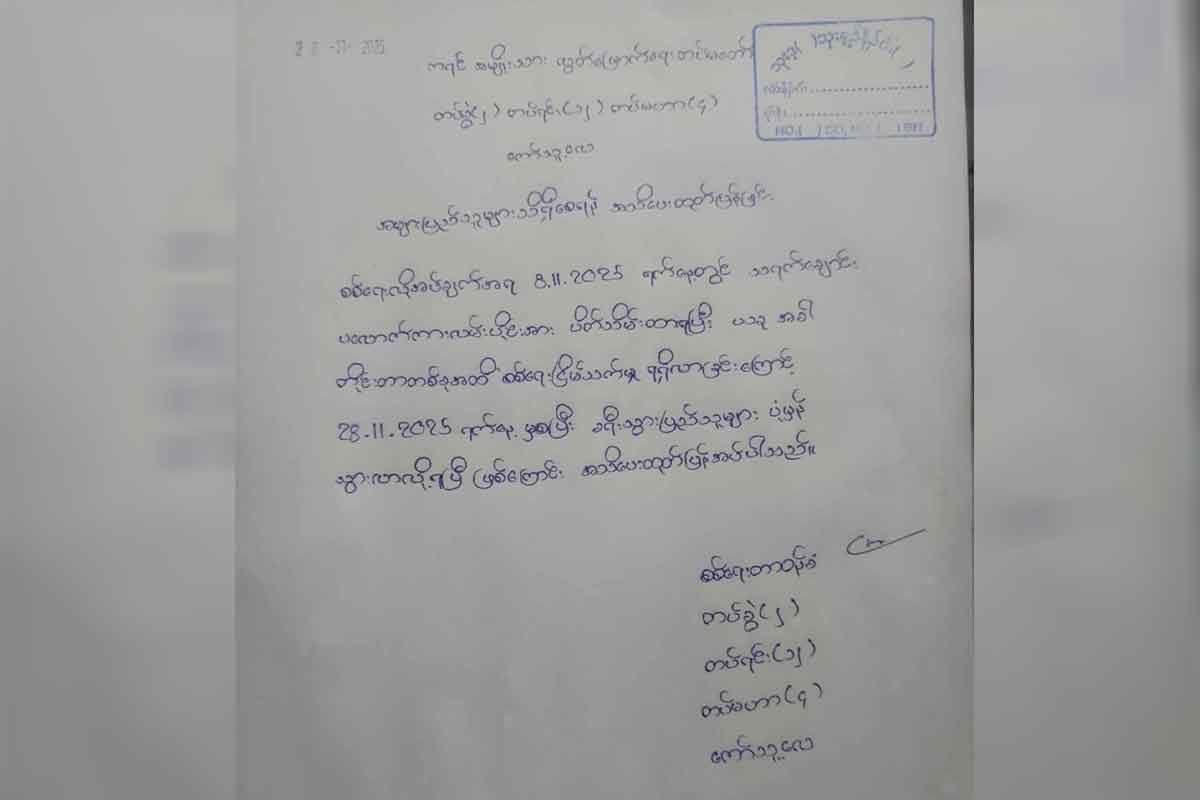 28-11-2025
ကရင် အမျိုးသား လွတ်မြောက်ရေး တပ်မတော်
တပ်ခွဲ(၂) တပ်ရင်း(၁၂) တပ်မဟာ(၄)
ကော်သူးလေ
အများပြည်သူများသိရှိစေရန် အသိပေးထုတ်ပြန်ခြင်း
စစ်ရေးလိုအပ်ချက်အရ 8.11.2025 ရက်နေ့တွင် သရက်ချောင်း
ပလောက်ကားလမ်းပိုင်းအား ပိတ်သိမ်းထားရပြီး ယခု အခါ
တိုင်းတာတစ်ခုအထိ စစ်ရေးငြိမ်သက်မှု ရရှိလာခြင်းကြောင့်
28.11.2025 ရက်နေ့ မှစပြီး ခရီးသွားပြည်သူများ ပုံမှန်
သွားလာလို့ရပြီ ဖြစ်ကြောင်း အသိပေးထုတ်ပြန်အပ်ပါသည်။
စစ်ရေးတာဝန်ခံ
တပ်ခွဲ(၂)
တပ်ရင်း(၁၂)
တပ်မဟာ(၄)
ကော်သူးလေ